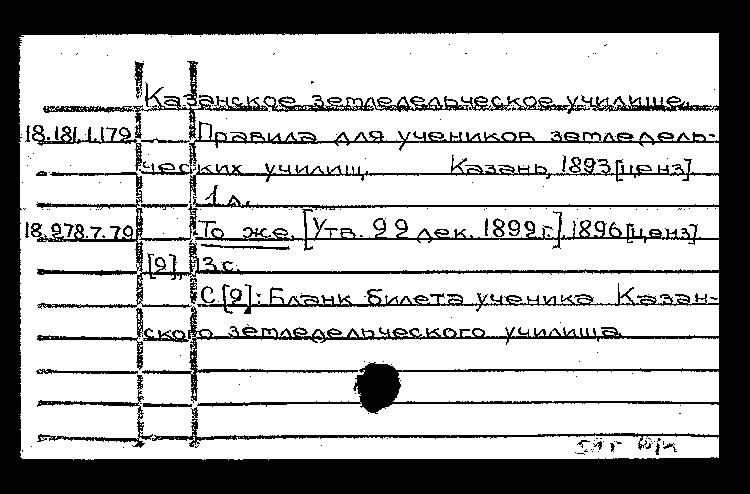 Казанское земледельческое училище.
18.181.1.179 Правила для учеников земледель-
ческих училищ. Казань, 1893 [ценз].
1 л.
18.278.7.79 То же. [Утв. 22 дек. 1892 г.]. 1896 [ценз]
[2], 3 с.
С. [2]: Бланк билета ученика Казан-
ского земледельческого училища